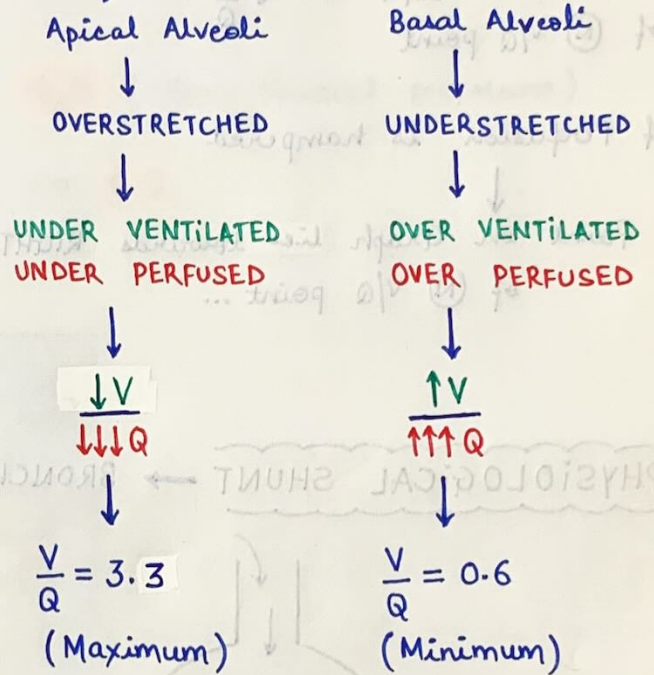 Apical Alveoli
↓
OVERSTRETCHED
↓
UNDER VENTILATED
UNDER PERFUSED
↓
↓V
↓↓↓Q
↓
V/Q = 3.3
(Maximum)
Basal Alveoli
↓
UNDERSTRETCHED
↓
OVER VENTILATED
OVER PERFUSED
↓
↑V
↑↑↑Q
↓
V/Q = 0.6
(Minimum)
PHYSIOLOGICAL SHUNT → BRONCH